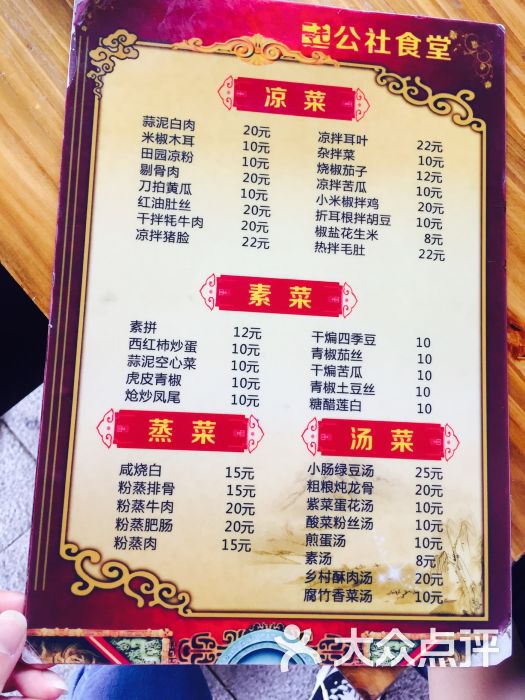 公社食堂
凉菜
蒜泥白肉 20元
米椒木耳 10元
田园凉粉 10元
剔骨肉 20元
刀拍黄瓜 10元
红油肚丝 20元
干拌牦牛肉 20元
凉拌猪脸 22元
凉拌耳叶 22元
杂拌菜 10元
烧椒茄子 12元
凉拌苦瓜 10元
小米椒拌鸡 20元
折耳根拌胡豆 10元
椒盐花生米 8元
热拌毛肚 22元
素菜
素拼 12元
西红柿炒蛋 10元
蒜泥空心菜 10元
虎皮青椒 10元
炝炒凤尾 10元
干煸四季豆 10
青椒茄丝 10
干煸苦瓜 10
青椒土豆丝 10
糖醋莲白 10
蒸菜
咸烧白 15元
粉蒸排骨 15元
粉蒸牛肉 20元
粉蒸肥肠 20元
粉蒸肉 15元
汤菜
小肠绿豆汤 25元
粗粮炖龙骨 20元
紫菜蛋花汤 10元
酸菜粉丝汤 10元
煎蛋汤 10元
素汤 8元
乡村酥肉汤 20元
腐竹香菜汤 10元
大众点评